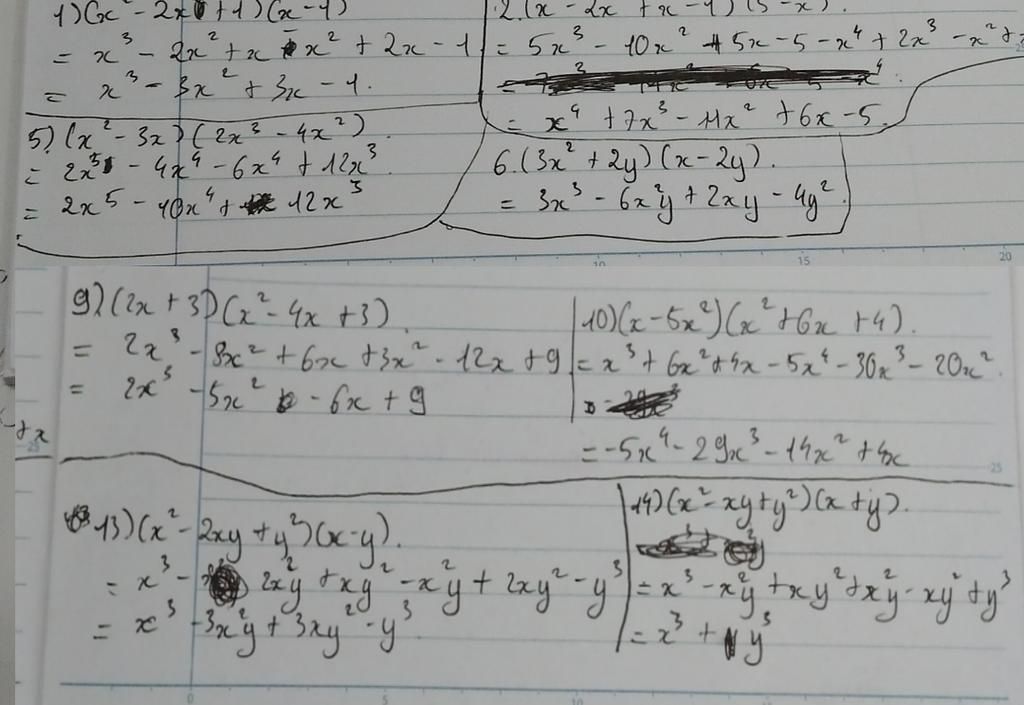 1) (x² - 2x + 1)(x - 1)
= x³ - 2x² + x - x² + 2x - 1
= x³ - 3x² + 3x - 1.
2. (x³ - 2x² + x - 1)(5 - x).
= 5x³ - 10x² + 5x - 5 - x⁴ + 2x³ - x² +
= x⁴ + 7x³ - 11x² + 6x - 5.
5) (x² - 3x)(2x³ - 4x²)
= 2x⁵ - 4x⁴ - 6x⁴ + 12x³
= 2x⁵ - 10x⁴ + 12x³
6. (3x² + 2y)(x - 2y).
= 3x³ - 6x²y + 2xy - 4y².
10 15 20
9) (2x + 3)(x² - 4x + 3).
= 2x³ - 8x² + 6x + 3x² - 12x + 9
= 2x³ - 5x² - 6x + 9
10) (x - 5x²)(x² + 6x + 4).
= x³ + 6x² + 4x - 5x⁴ - 30x³ - 20x².
= -5x⁴ - 29x³ - 14x² + 4x
+x
25
25
13) (x² - 2xy + y²)(x - y).
= x³ - 2x²y + xy² - x²y + 2xy² - y³
= x³ - 3x²y + 3xy² - y³
14) (x² - xy + y²)(x + y).
= x³ - x²y + xy² + x²y - xy² + y³
= x³ + y³
0 10